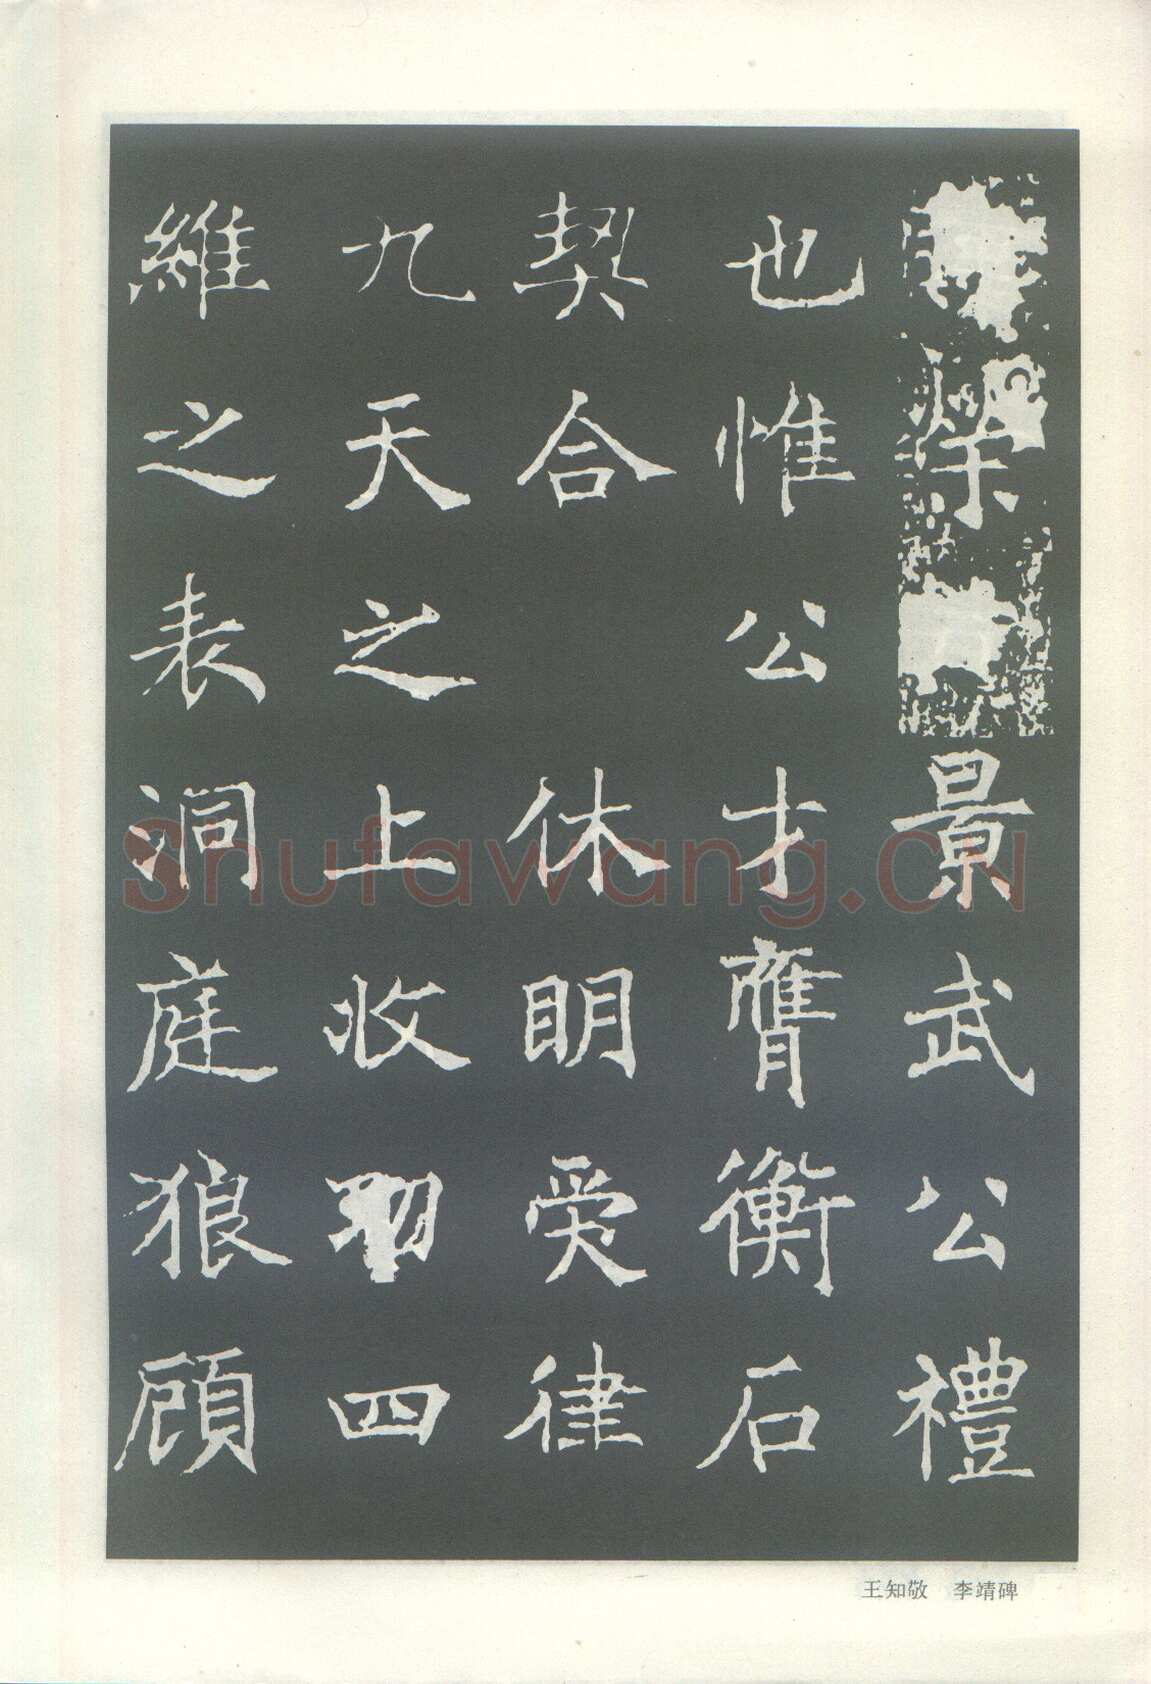 榮景武公禮
也惟公才膺衡石
契合休明爰律
九天之上收功四
維之表洞庭狼顧
Shufawang.CN
王知敬 李靖碑